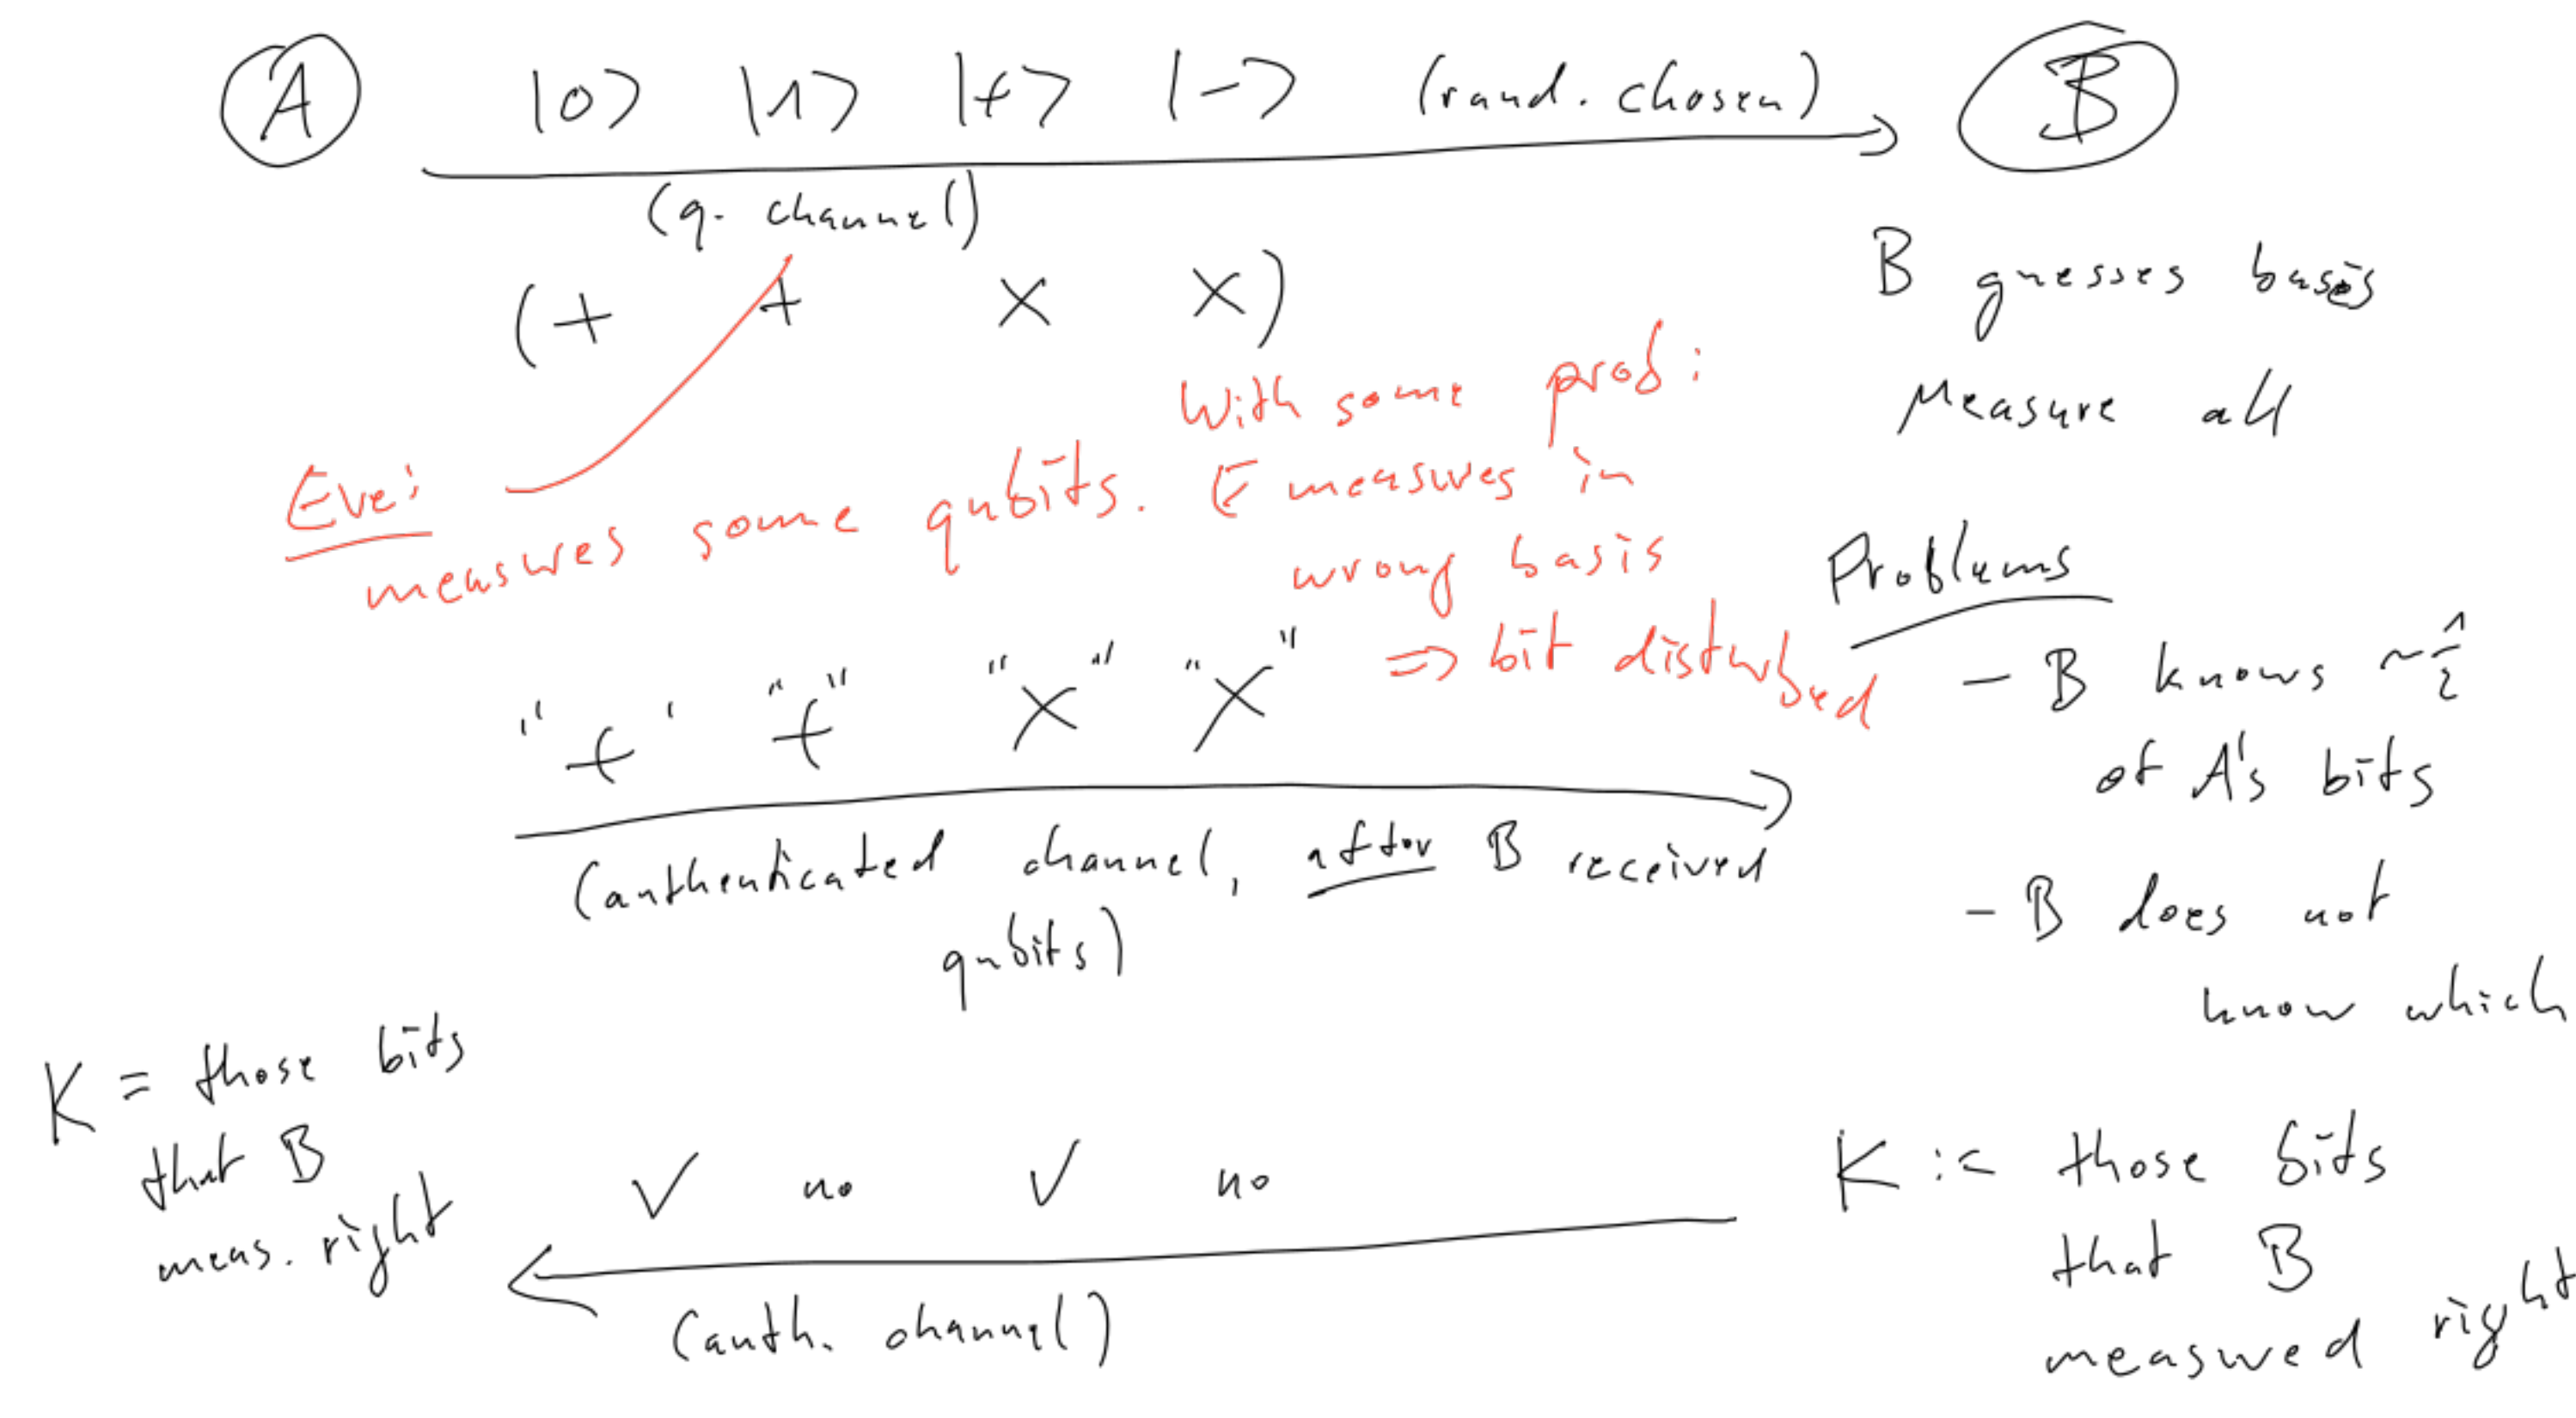 A |0> |1> |+> |-> (rand. chosen) B
(q. channel)
(+ + × ×)
B guesses basis
Measure all
Eve:
measures some qubits. With some prob:
E measures in
wrong basis
=> bit disturbed
Problems
- B knows ~ 1/2
of A's bits
- B does not
know which
"+" "+" "×" "×"
(authenticated channel, after B received
qubits)
K = those bits
that B
meas. right
✓ no ✓ no
(auth. channel)
K := those bits
that B
measured right